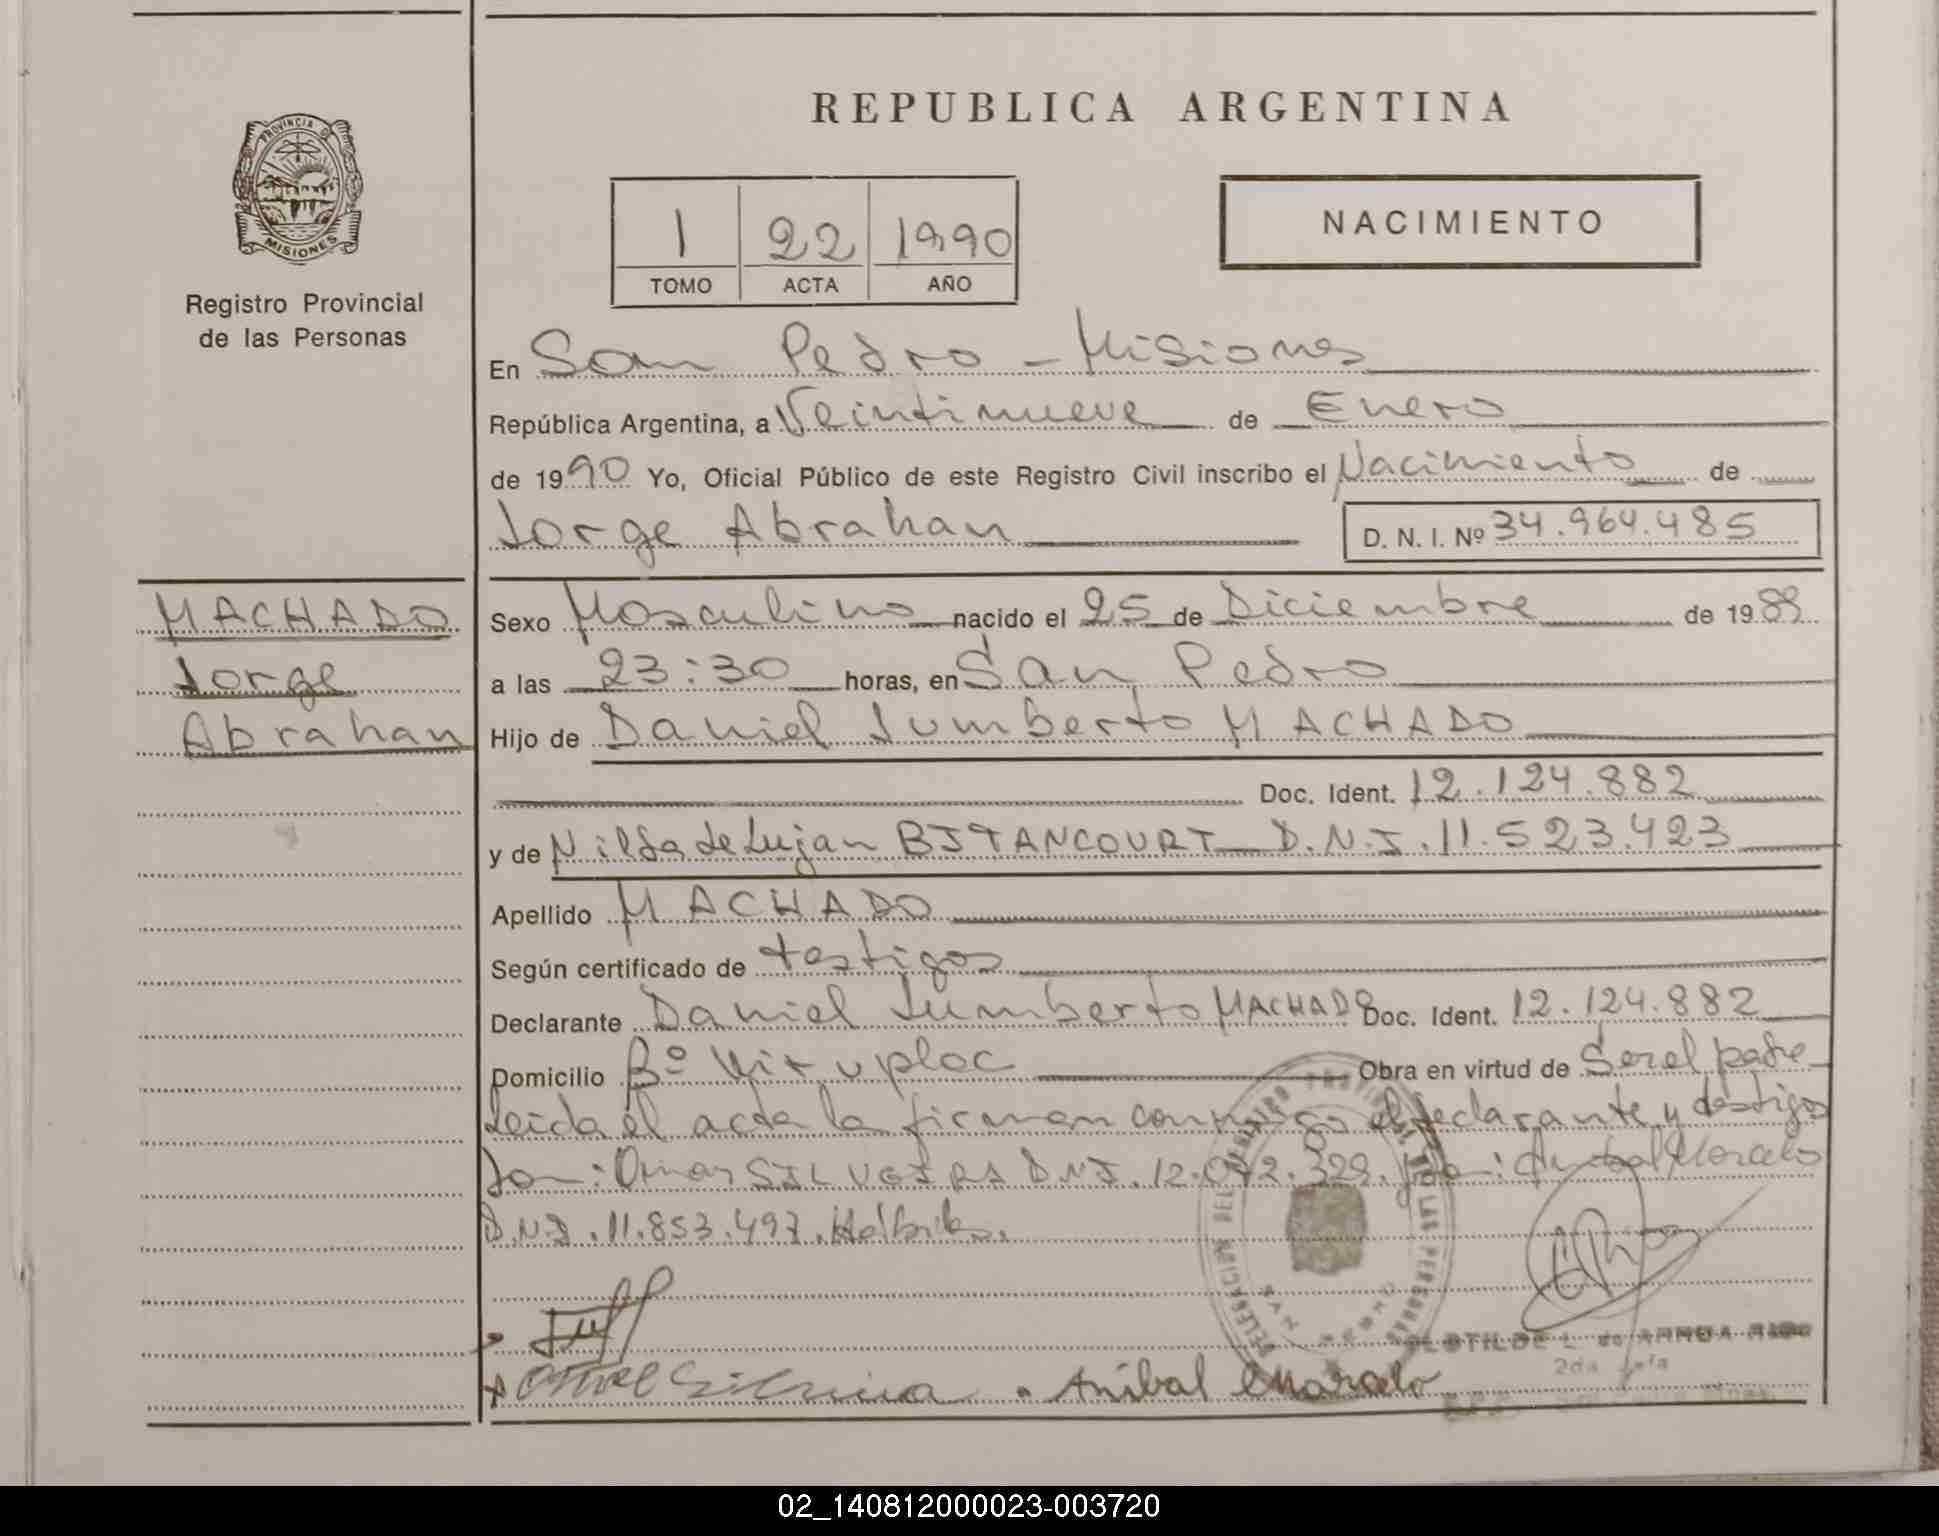 REPUBLICA ARGENTINA
PROVINCIA DE
MISIONES
Registro Provincial
de las Personas
1 22 1990
TOMO ACTA AÑO
NACIMIENTO
En San Pedro - Misiones
República Argentina, a Veintinueve de Enero
de 1990 Yo, Oficial Público de este Registro Civil inscribo el Nacimiento de
Jorge Abrahan D. N. I. Nº 34.964.485
MACHADO
Jorge
Abrahan
Sexo Masculino nacido el 25 de Diciembre de 1989
a las 23:30 horas, en San Pedro
Hijo de Daniel Jumberto MACHADO
Doc. Ident. 12.124.882
y de Nilda de Lujan BITANCOURT D.N.I. 11.523.423
Apellido MACHADO
Según certificado de testigos
Declarante Daniel Jumberto MACHADO Doc. Ident. 12.124.882
Domicilio Bº Obra en virtud de Ser el padre
Leida el acta la firman conmigo el declarante y testigos
Son: Omar SILVEIRA D.N.I. 12.042.329. Anibal Morcelo
D.N.I. 11.853.497.
DELEGACION DEL REGISTRO PROVINCIAL DE LAS PERSONAS
SAN PEDRO
CLOTILDE L. de
2da Jefa
Anibal Marcelo
02_140812000023-003720